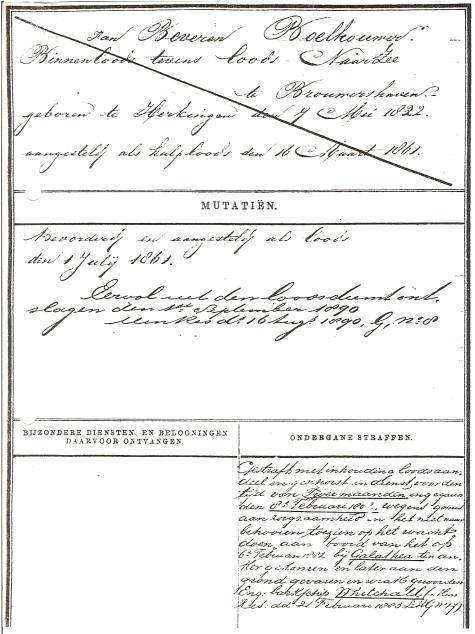 van Beveren Boelhouwer.
Binnenloods tevens loods Naar Zee
te Brouwershaven.
geboren te Herkingen den 7 Mei 1822.
aangesteld als hulploods den 16 Maart 1861.
MUTATIËN.
Bevorderd en aangesteld als loods
den 1 Julij 1861.
Eervol uit den loodsdienst ont.
slagen den 1ste September 1890
Min Res dd 16 Augt 1890, G, No 8
BIJZONDERE DIENSTEN, EN BELOONINGEN
DAARVOOR ONTVANGEN.
ONDERGANE STRAFFEN.
Gestraft met inhouding loods aan.
deel en geschorst in dienst voor den
tijd van Twee maanden ingegaan
den 8e Februari wegens gemis
aan zorgzaamheid in het niet naar
behooren toezien op het wacht
doen aan boord van het op
6e Februari bij Galathea ten an.
ker gekomen en later aan den
grond gevaren en wrak geworden
Eng. barkschip Whitehall
Res. dd. 21 Februari 1883